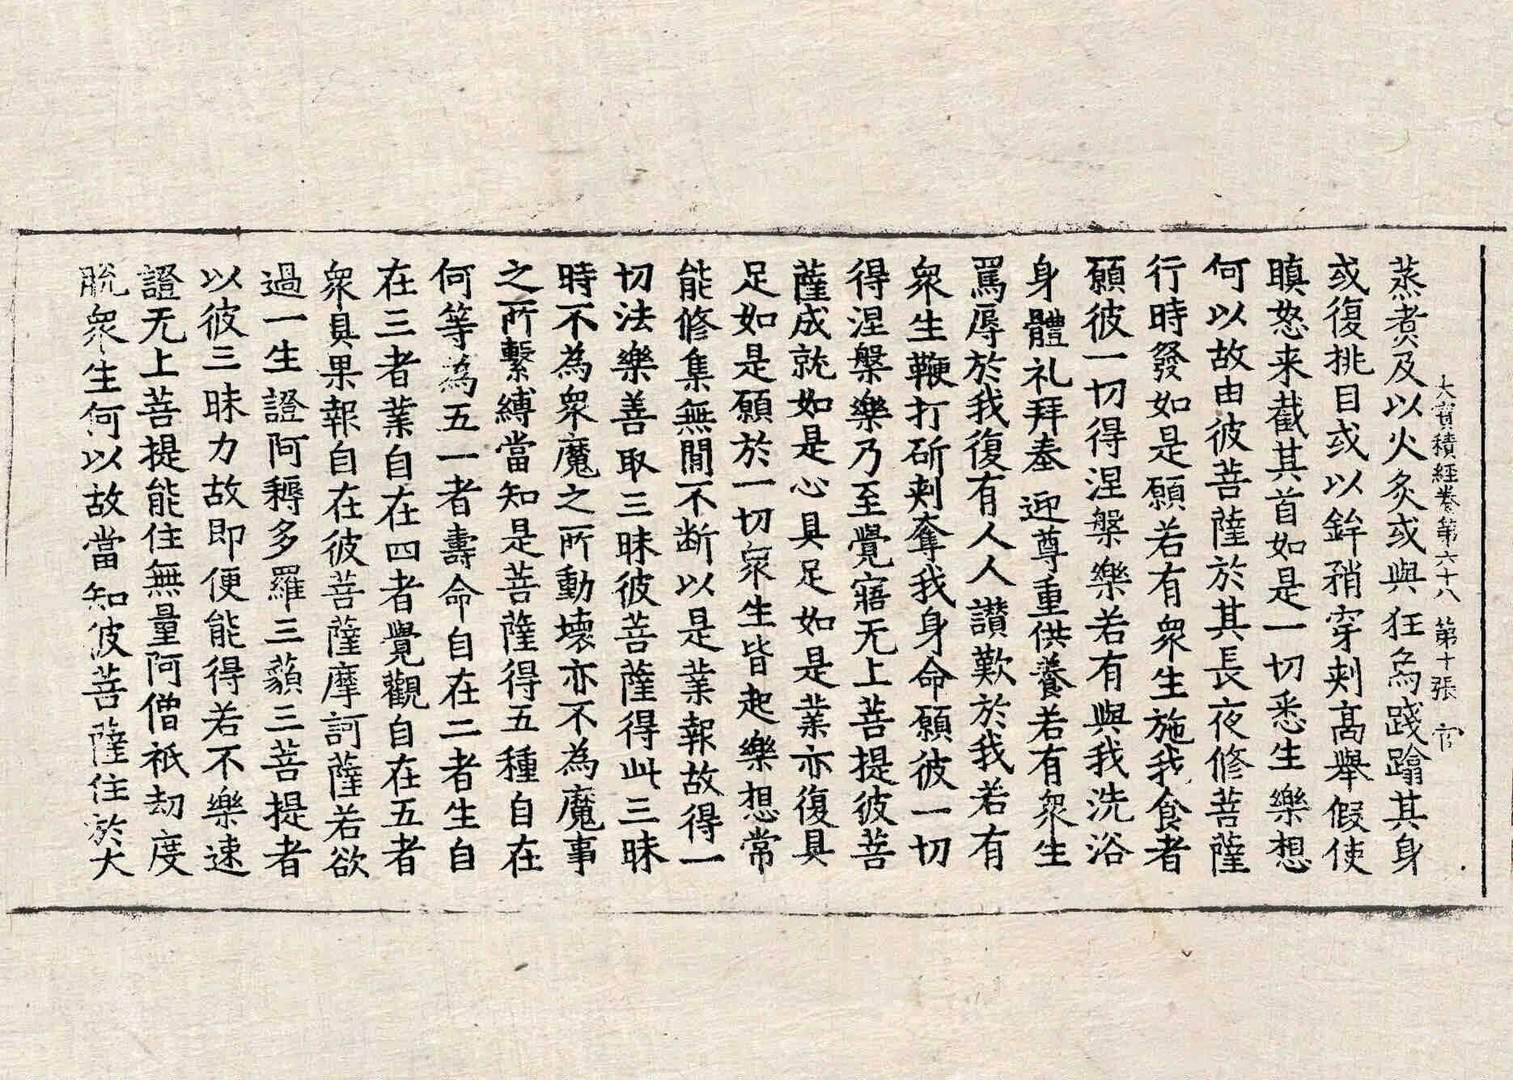 大寶積經卷第六十八 第十張 官
蒸煮及以火炙或與狂烏踐蹹其身
或復挑目或以鉾矟穿刾高舉假使
瞋怒来截其首如是一切悉生樂想
何以故由彼菩薩於其長夜修菩薩
行時發如是願若有衆生施我食者
願彼一切得涅槃樂若有與我洗浴
身體礼拜奉迎尊重供養若有衆生
罵辱於我復有人人讃歎於我若有
衆生鞭打斫刾奪我身命願彼一切
得涅槃樂乃至覺寤无上菩提彼菩
薩成就如是心具足如是業亦復具
足如是願於一切衆生皆起樂想常
能修集無間不断以是業報故得一
切法樂善取三昧彼菩薩得此三昧
時不為衆魔之所動壞亦不為魔事
之所繫縛當知是菩薩得五種自在
何等為五一者壽命自在二者生自
在三者業自在四者覺觀自在五者
衆具果報自在彼菩薩摩訶薩若欲
過一生證阿耨多羅三藐三菩提者
以彼三昧力故即便能得若不樂速
證无上菩提能住無量阿僧祇劫度
脫衆生何以故當知彼菩薩住於大